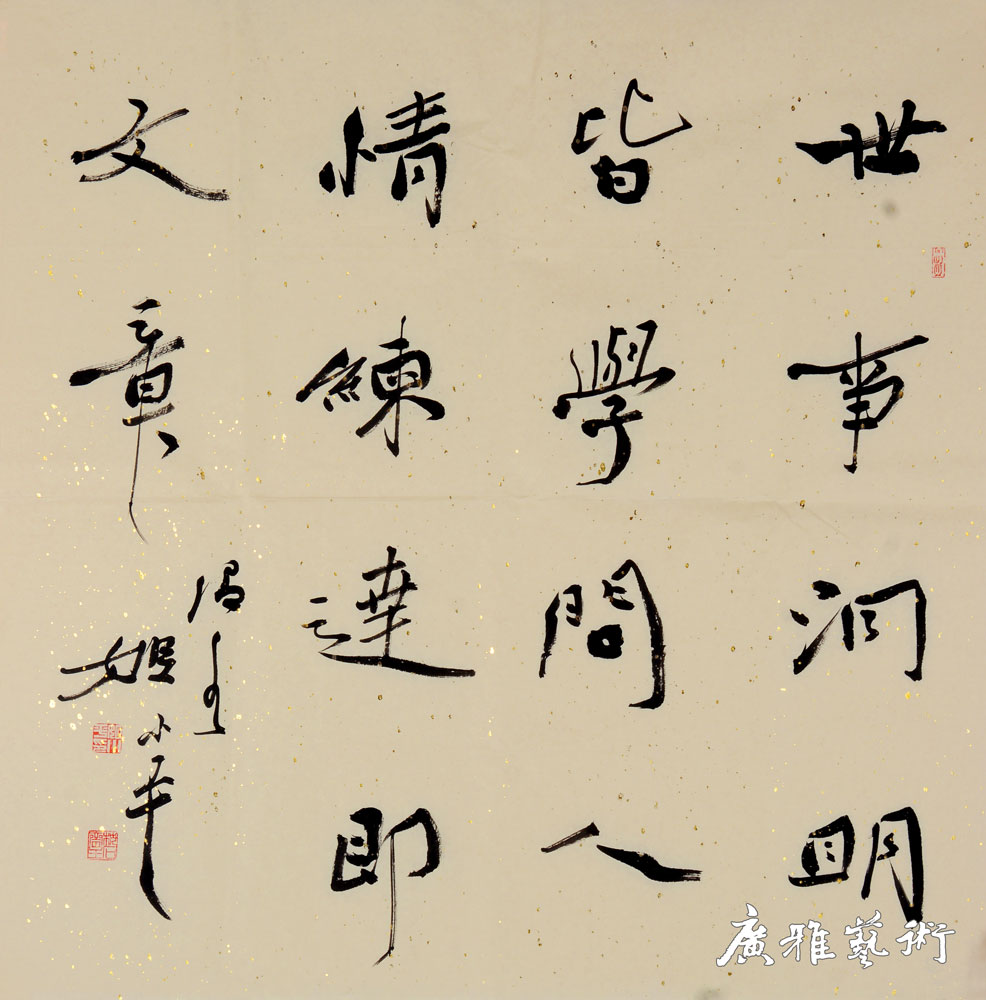 世事洞明
皆學問人
情練達即
文章
姬小平
廣雅藝術